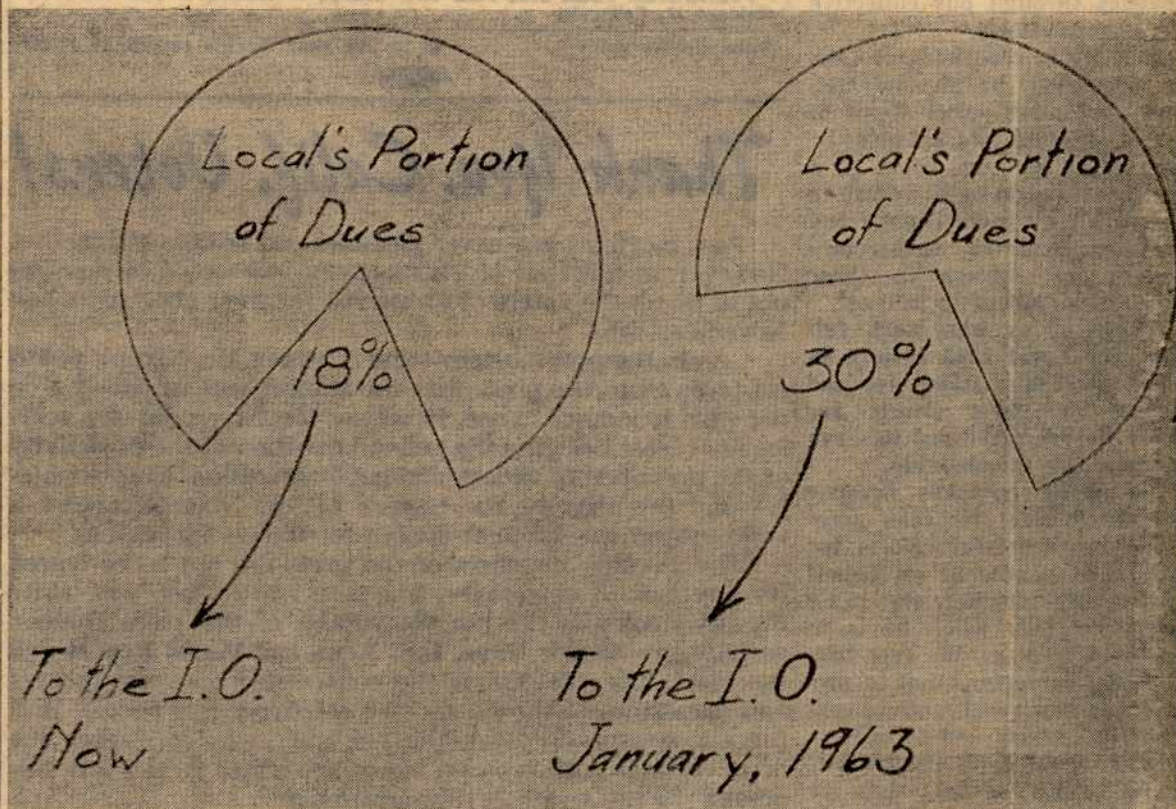 Local's Portion
of Dues
18%
To the I.O.
Now
Local's Portion
of Dues
30%
To the I.O.
January, 1963